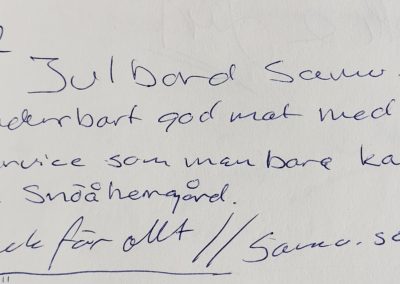 Julbord Samo.
underbart god mat med
service som man bara ka
Snöåhemgård.
ck för allt // Samo.se